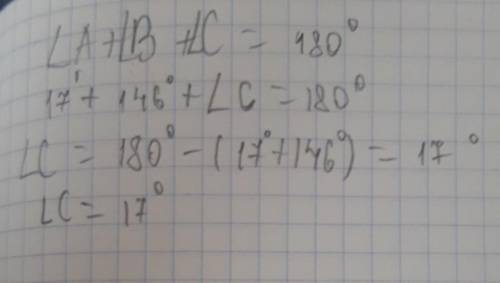 ∠A+∠B+∠C = 180°
17°+146°+∠C = 180°
∠C = 180°-(17°+146°) = 17°
∠C = 17°